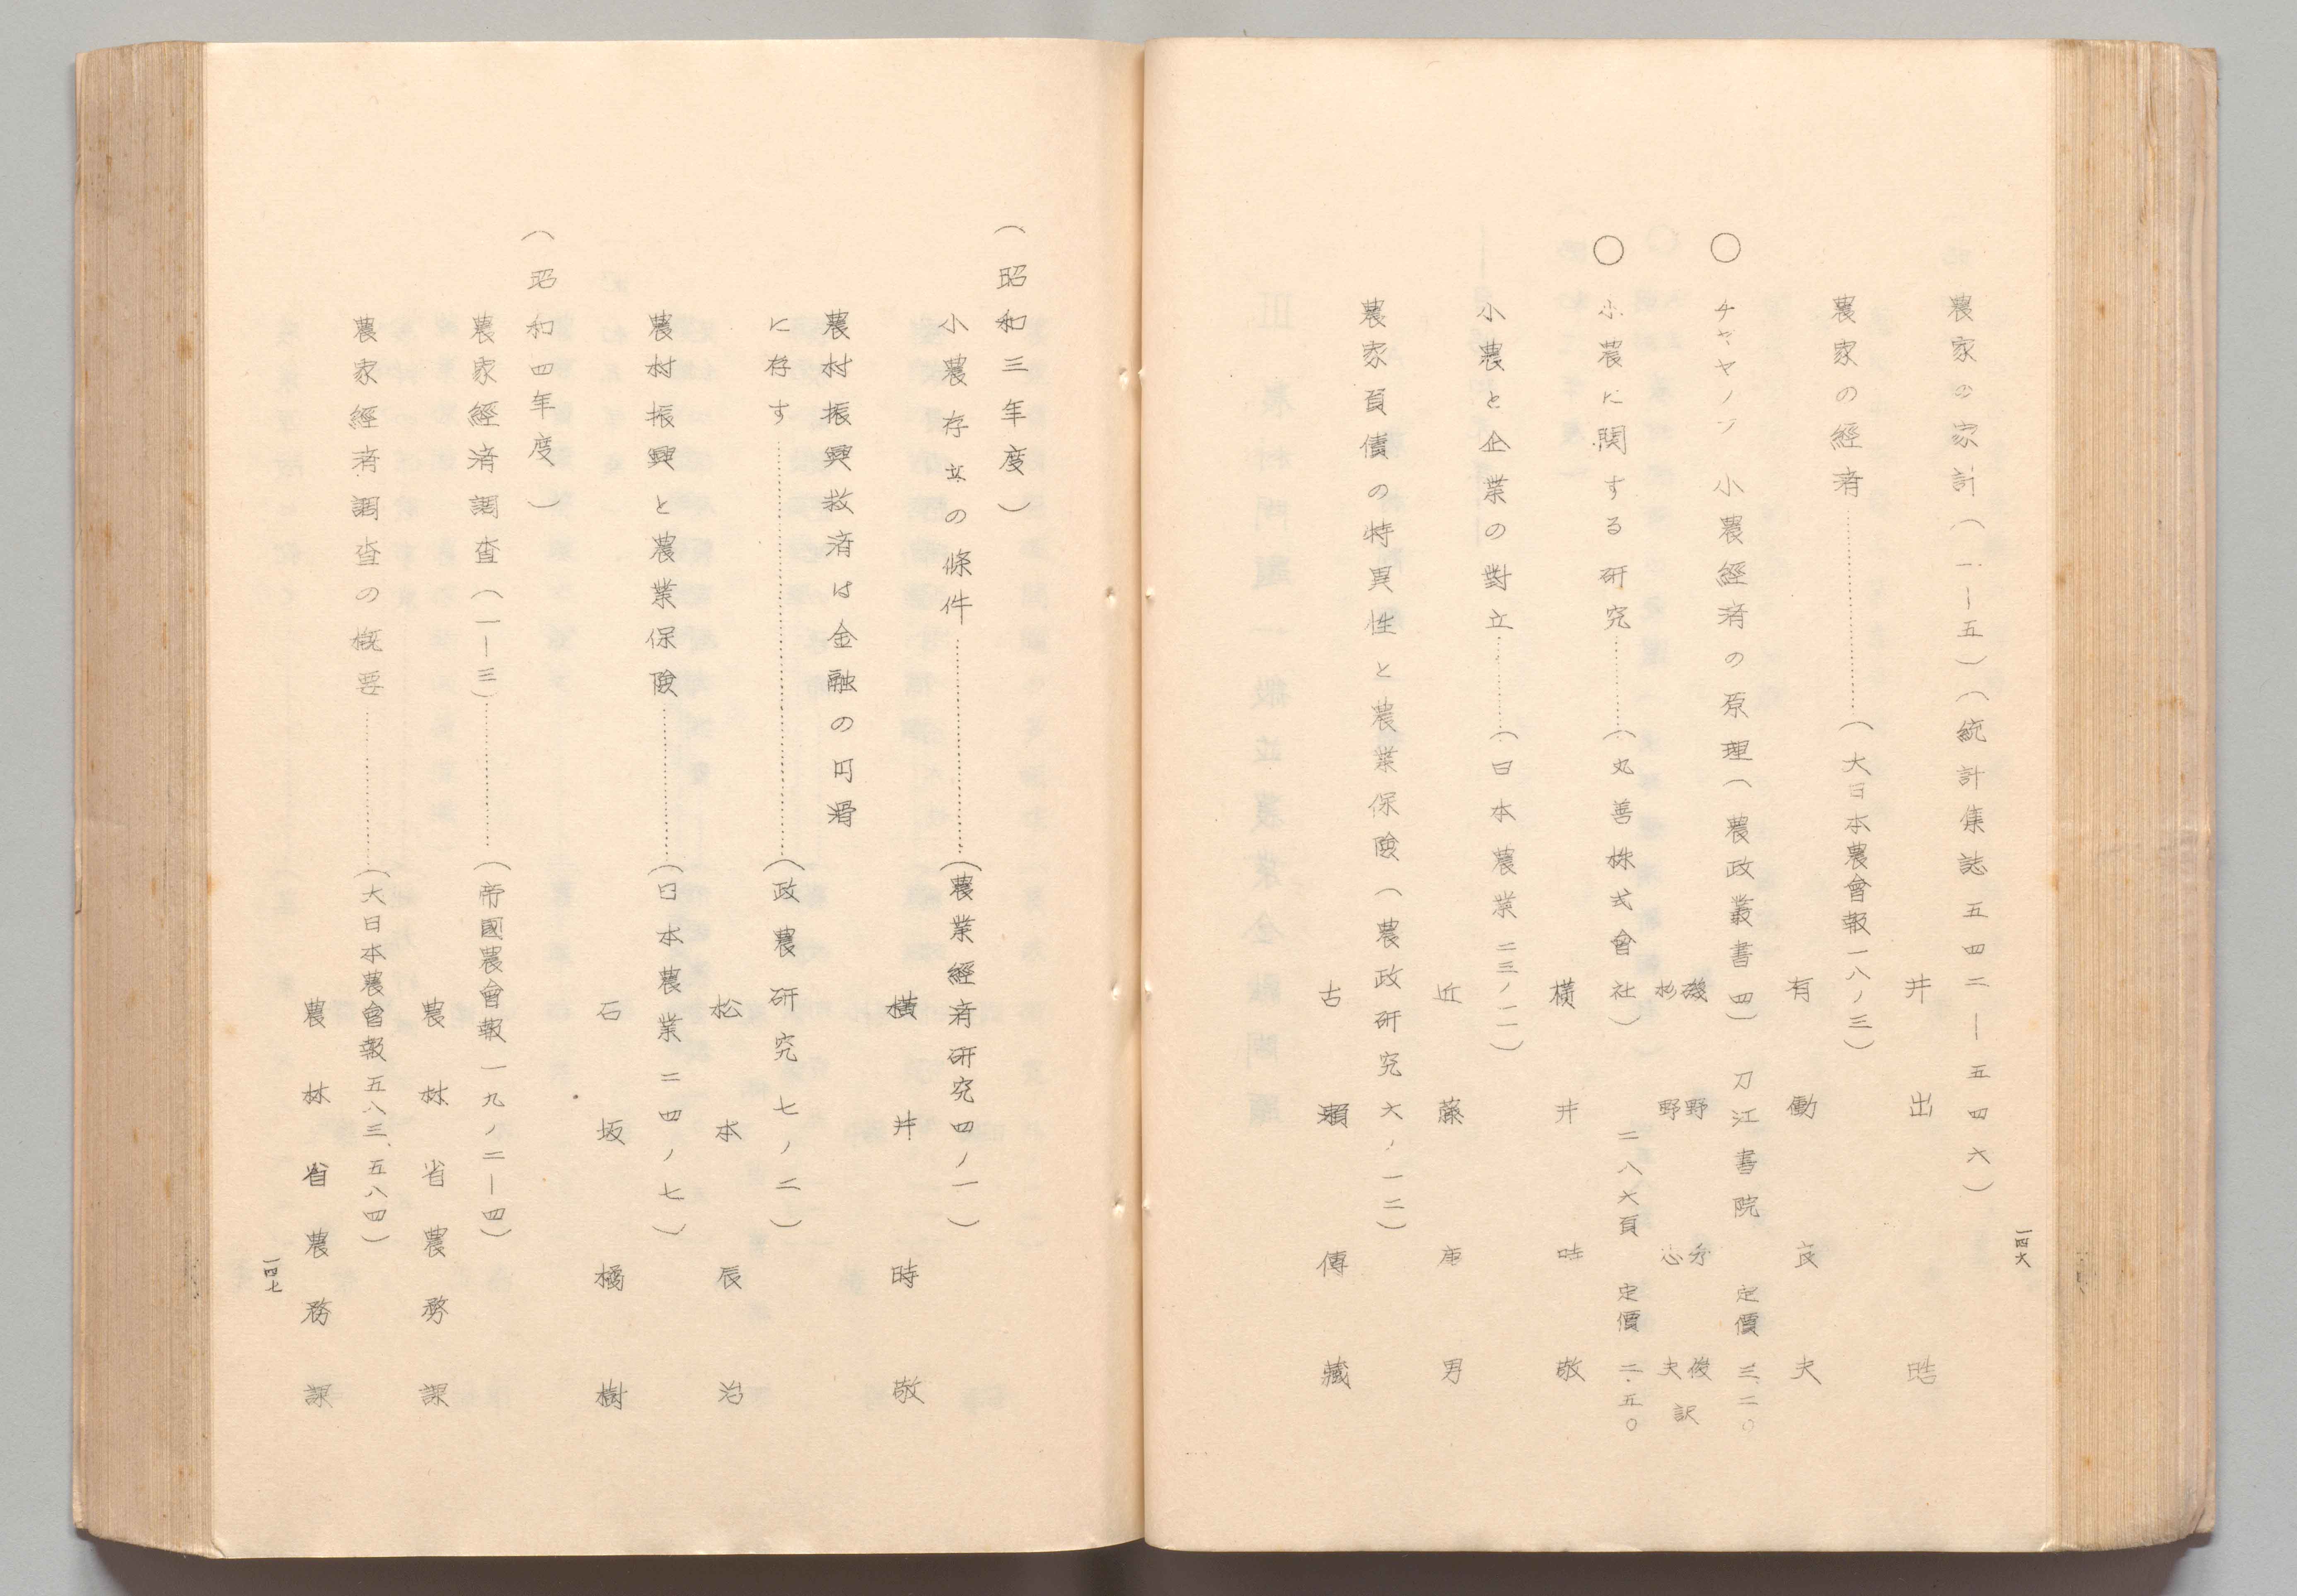 農家の家計(一―五)(統計集誌五四二―五四六)
井出晧
農家の經済……………(大日本農會報一八ノ三)
有働良夫
○チャヤノフ 小農經済の原理(農政叢書四)刀江書院 定價三、二〇
磯野秀俊
杉野忠夫 訳
○小農に関する研究………(丸善株式會社)二八六頁 定價二.五〇
横井時敬
小農と企業の對立………(日本農業二三ノ一一)
近藤康男
農家負債の特異性と農業保險(農政研究六ノ一二)
古瀬傳藏
一四六
(昭和三年度)
小農存立の條件……………(農業經済研究四ノ一)
横井時敬
農村振興救済は金融の円滑
に存す…………………………(政農研究七ノ二)
松本辰治
農村振興と農業保險…………(日本農業二四ノ七)
石坂橘樹
(昭和四年度)
農家經済調査(一―三)…………(帝國農會報一九ノ二―四)
農林省農務課
農家經済調査の概要…………(大日本農會報五八三、五八四)
農林省農務課
一四七